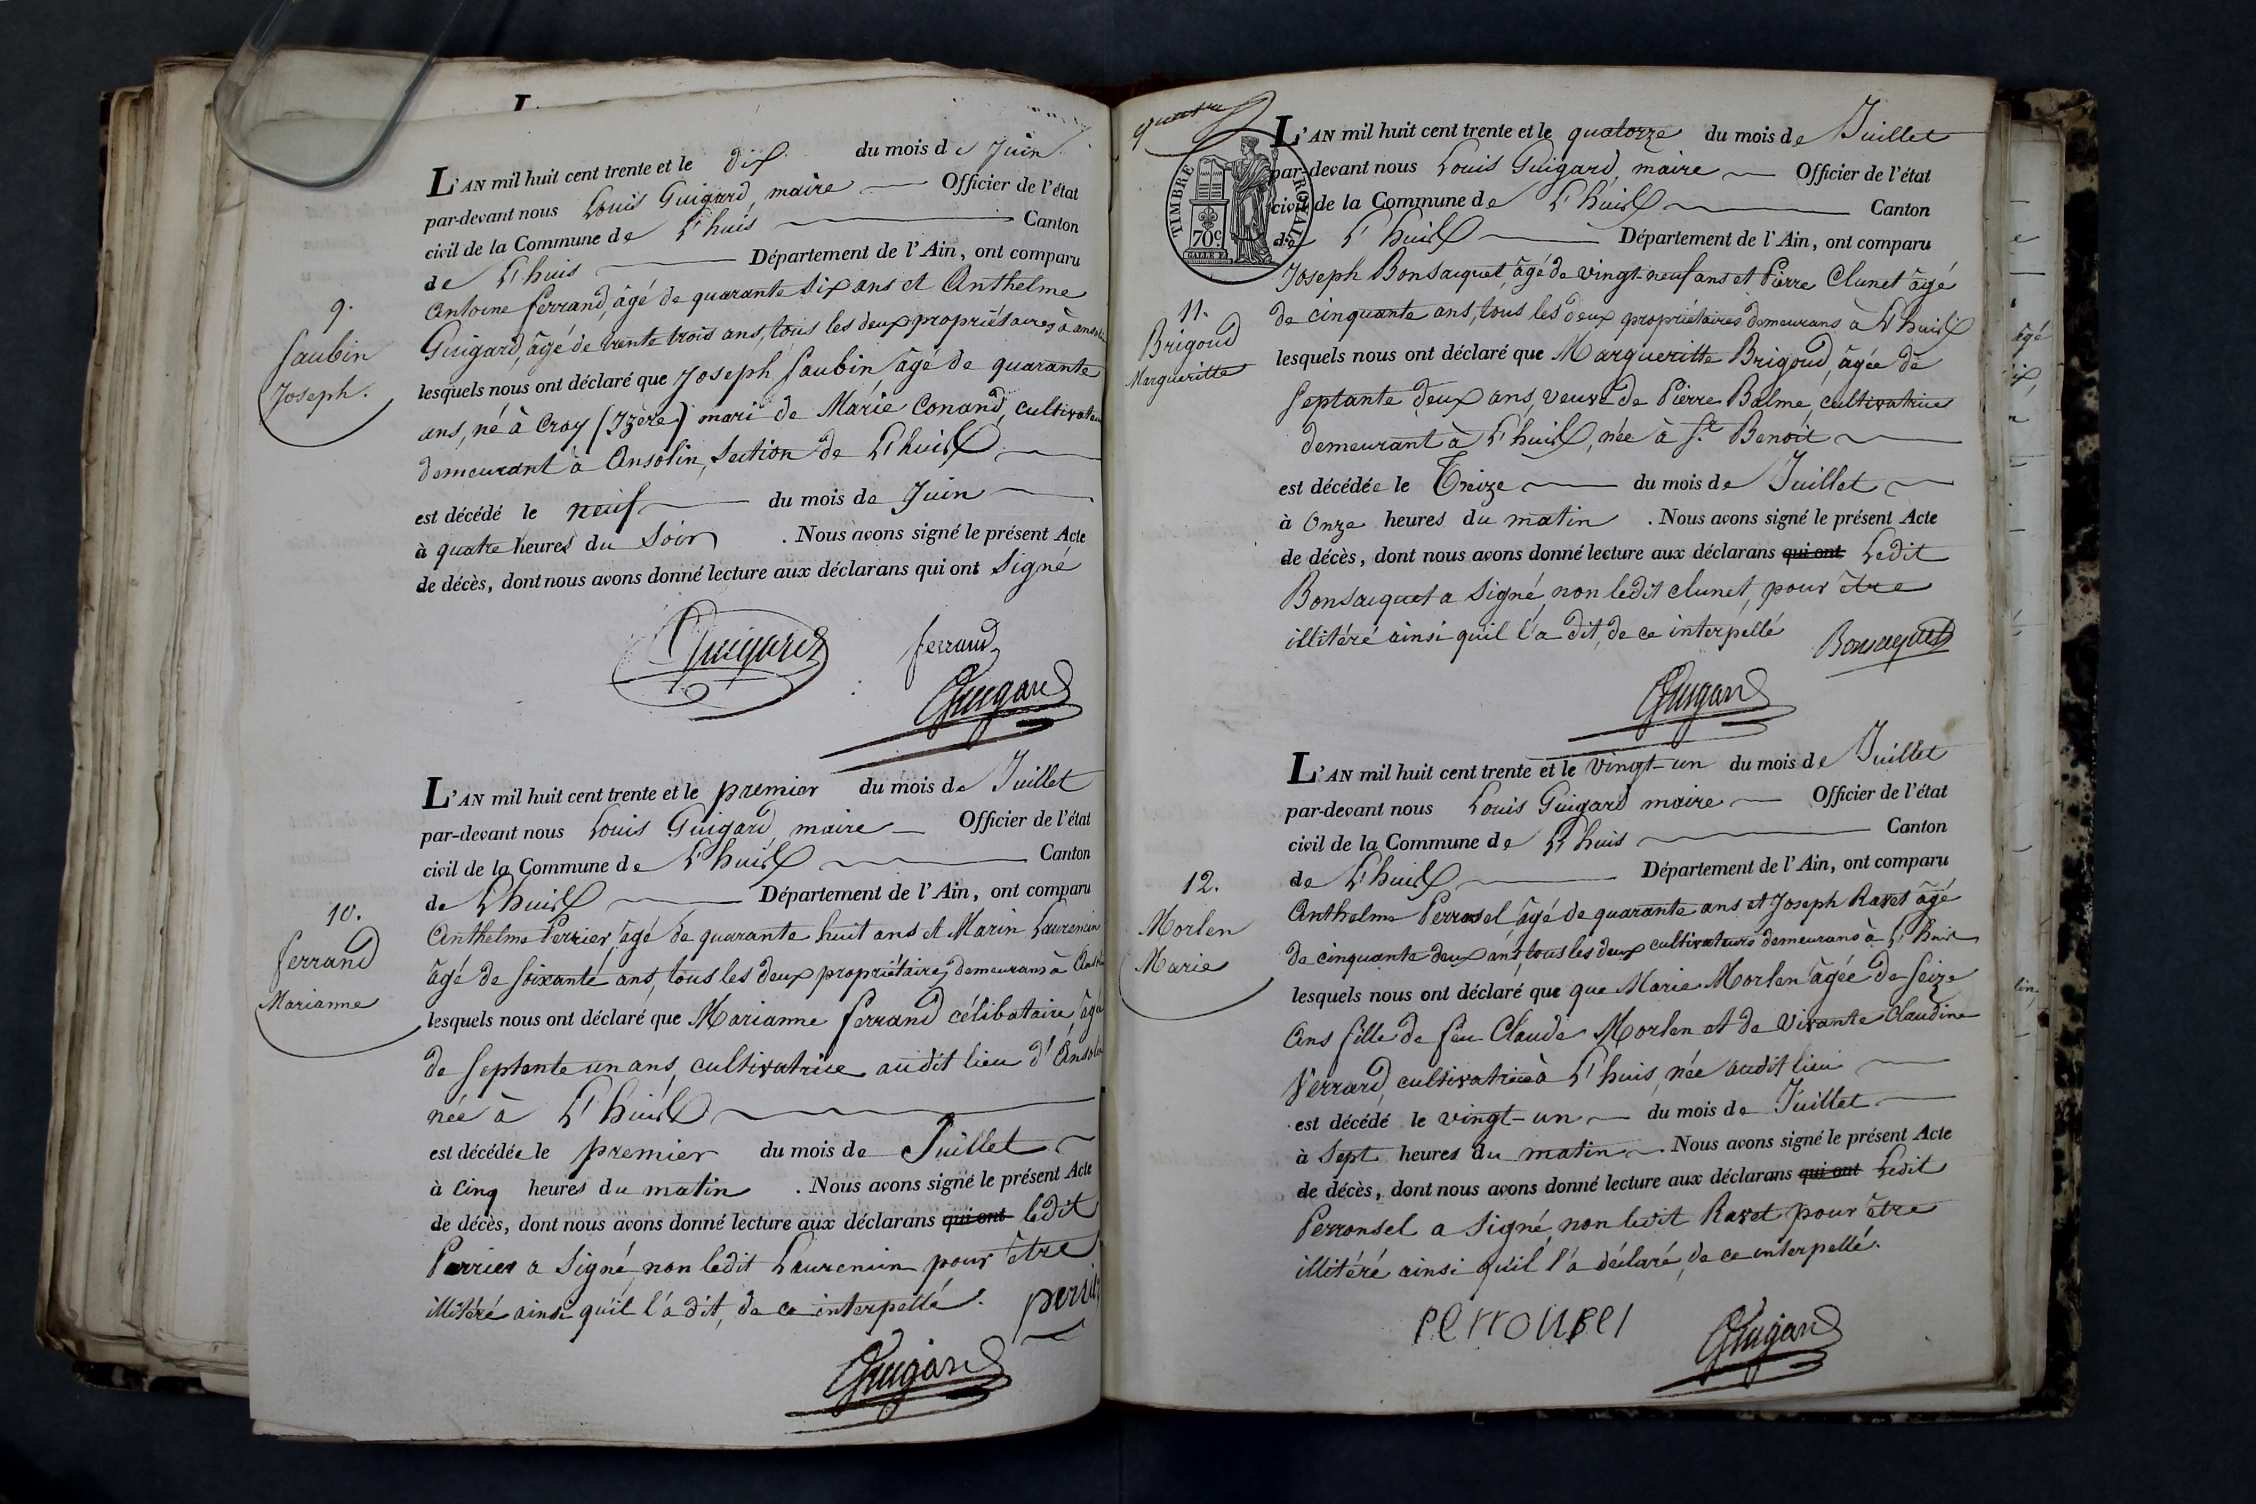 L'AN mil huit cent trente et le dix du mois de Juin
par-devant nous Louis Guigard, maire Officier de l'état
civil de la Commune de L'huis Canton
de L'huis Département de l'Ain, ont comparu
9.
Antoine ferrand, âgé de quarante six ans et Anthelme
Guigard, âgé de trente trois ans, tous les deux propriétaires à
Saubin
Joseph.
lesquels nous ont déclaré que Joseph Saubin âgé de quarante
ans, né à Cray (Izère) mari de Marie Conand, cultivateur
demeurant à Ansolin, Section de L'huis
est décédé le neuf du mois de Juin
à quatre heures du Soir . Nous avons signé le présent Acte
de décès, dont nous avons donné lecture aux déclarans qui ont Signé
Guigard ferrand
Guigard
L'AN mil huit cent trente et le premier du mois de Juillet
par-devant nous Louis Guigard maire Officier de l'état
civil de la Commune de L'huis Canton
de L'huis Département de l'Ain, ont comparu
10.
Anthelme Perrier, âgé de quarante huit ans et Marin Laurencin
ferrand
Marianne
âgé de Soixante ans, tous les deux propriétaires demeurans à
lesquels nous ont déclaré que Marianne ferrand célibataire âgée
de septente un ans, cultivatrice audit lieu d'Ansolin
née à L'huis
est décédée le premier du mois de Juillet
à cinq heures du matin . Nous avons signé le présent Acte
de décès, dont nous avons donné lecture aux déclarans qui ont ledit
Perrier a Signé, non ledit Laurencin pour être
illitéré ainsi qu'il l'a dit, de ce interpellé.
Guigard
TIMBRE ROYAL
70c.
L'AN mil huit cent trente et le quatorze du mois de Juillet
par-devant nous Louis Guigard, maire Officier de l'état
civil de la Commune de L'huis Canton
de L'huis Département de l'Ain, ont comparu
Joseph Bonsacquet, âgé de vingt-neuf ans et Pierre Clunet âgé
11.
Brigoud
Margueritte
de cinquante ans, tous les deux propriétaires demeurans à L'huis
lesquels nous ont déclaré que Margueritte Brigoud, âgée de
Septante deux ans, veuve de Pierre Balme, cultivatrice
demeurant à L'huis, née à St Benoit
est décédée le Treize du mois de Juillet
à Onze heures du matin . Nous avons signé le présent Acte
de décès, dont nous avons donné lecture aux déclarans qui ont Ledit
Bonsacquet a signé, non ledit clunet, pour être
illitéré ainsi qu'il l'a dit, de ce interpellé
Bonsacquet
Guigard
L'AN mil huit cent trente et le Vingt-un du mois de Juillet
par-devant nous Louis Guigard maire Officier de l'état
civil de la Commune de L'huis Canton
de L'huis Département de l'Ain, ont comparu
12.
Morlen
Marie
Anthelme Perrosel, âgé de quarante ans et Joseph Ravet âgé
de cinquante deux ans, tous les deux cultivateurs demeurans à L'huis
lesquels nous ont déclaré que que Marie Morlen âgée de Seize
Ans fille de feu Claude Morlen et de Vivante Claudine
Verrard, cultivatrice à L'huis, née audit lieu
est décédé le vingt-un du mois de Juillet
à Sept heures du matin . Nous avons signé le présent Acte
de décès, dont nous avons donné lecture aux déclarans qui ont Ledit
Perronsel a Signé, non ledit Ravet pour être
illitéré ainsi qu'il l'a déclaré, de ce interpellé.
Guigard